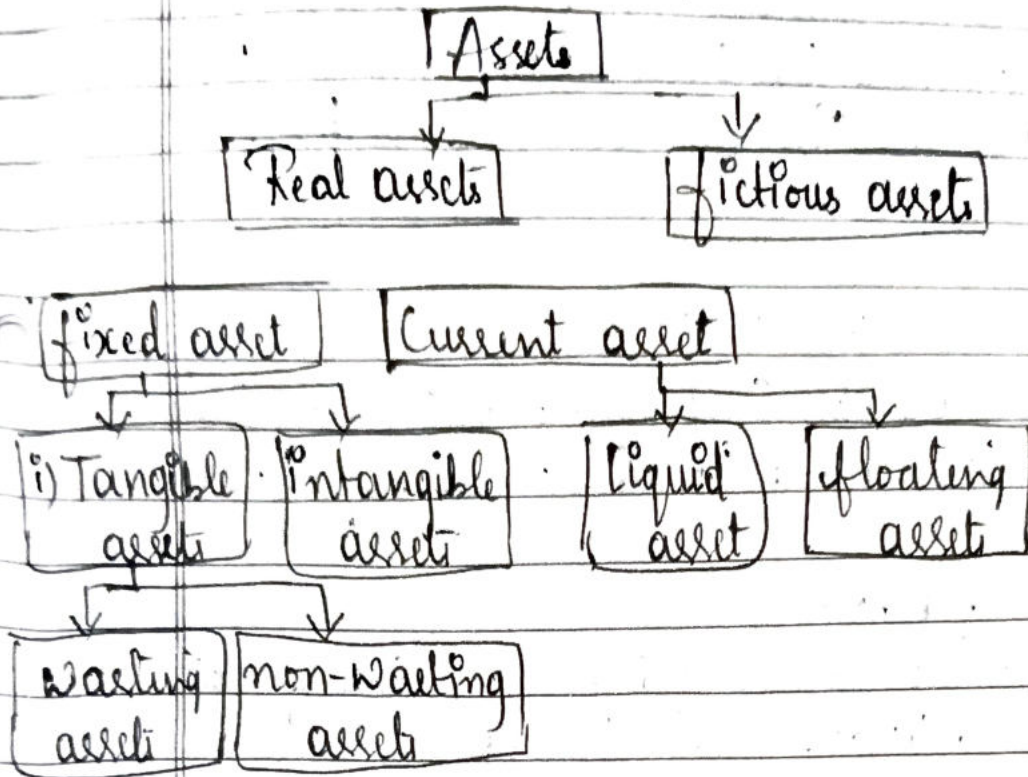 Assets
Real assets
fictious assets
fixed asset
Current asset
i) Tangible
assets
intangible
assets
Liquid
asset
floating
asset
Wasting
assets
non-Wasting
assets